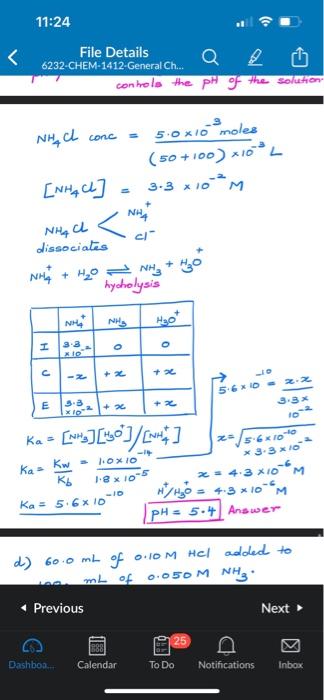 11:24
File Details
6232-CHEM-1412-General Ch...
controls the pH of the solution
NH₄Cl conc = 5.0 x10⁻³ moles
(50+100) x10⁻³ L
[NH₄Cl] = 3.3 x 10⁻² M
NH₄Cl < NH₄⁺
Cl⁻
dissociates
NH₄⁺ + H₂O ⇌ NH₃ + H₃O⁺
hydrolysis
NH₄⁺ NH₃ H₃O⁺
I 3.3 x10⁻² 0 0
C -x +x +x
E 3.3 x10⁻² +x +x
Ka = [NH₃][H₃O⁺]/[NH₄⁺]
Ka = Kw/Kb = 1.0×10⁻¹⁴/1.8×10⁻⁵
Ka = 5.6×10⁻¹⁰
5.6×10⁻¹⁰ = x.x/3.3×10⁻²
x = √5.6×10⁻¹⁰ × 3.3×10⁻²
x = 4.3 ×10⁻⁶ M
H⁺/H₃O⁺ = 4.3 ×10⁻⁶ M
pH = 5.4 Answer
d) 60.0 mL of 0.10 M HCl added to
mL of 0.050 M NH₃.
Previous
Next
25
Dashboa...
Calendar
To Do
Notifications
Inbox